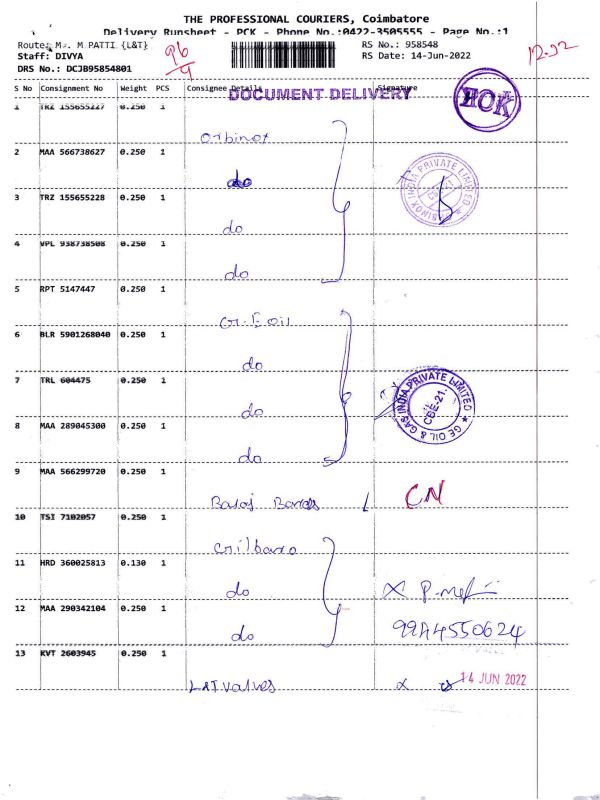 THE PROFESSIONAL COURIERS, Coimbatore
Delivery Runsheet - PCK - Phone No.:0422-3505555 - Page No.:1
Route: M. M PATTI {L&T}
RS No.: 958548
Staff: DIVYA
RS Date: 14-Jun-2022
DRS No.: DCJB95854801
96/9
S No Consignment No Weight PCS Consignee Details Signature
DOCUMENT DELIVERY
HOK
1 TRZ 155655227 0.250 1
Orbinox
2 MAA 566738627 0.250 1
do
INDIA PRIVATE LIMITED
3 TRZ 155655228 0.250 1
do
4 VPL 938738508 0.250 1
do
5 RPT 5147447 0.250 1
G.E oil
6 BLR 5901268040 0.250 1
do
7 TRL 604475 0.250 1
do
GE OIL & GAS INDIA PRIVATE LIMITED
CBE-21.
8 MAA 289045300 0.250 1
do
9 MAA 566299720 0.250 1
CN
10 TSI 7102057 0.250 1
Gilbarco
11 HRD 360025813 0.130 1
do
12 MAA 290342104 0.250 1
do
9944550624
13 KVT 2603945 0.250 1
L&T valves
14 JUN 2022